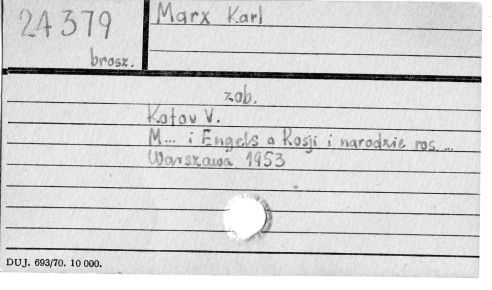 24379
brosz.
Marx Karl
zob.
Kotov V.
M... i Engels o Rosji i narodzie ros. ...
Warszawa 1953
DUJ. 693/70. 10 000.